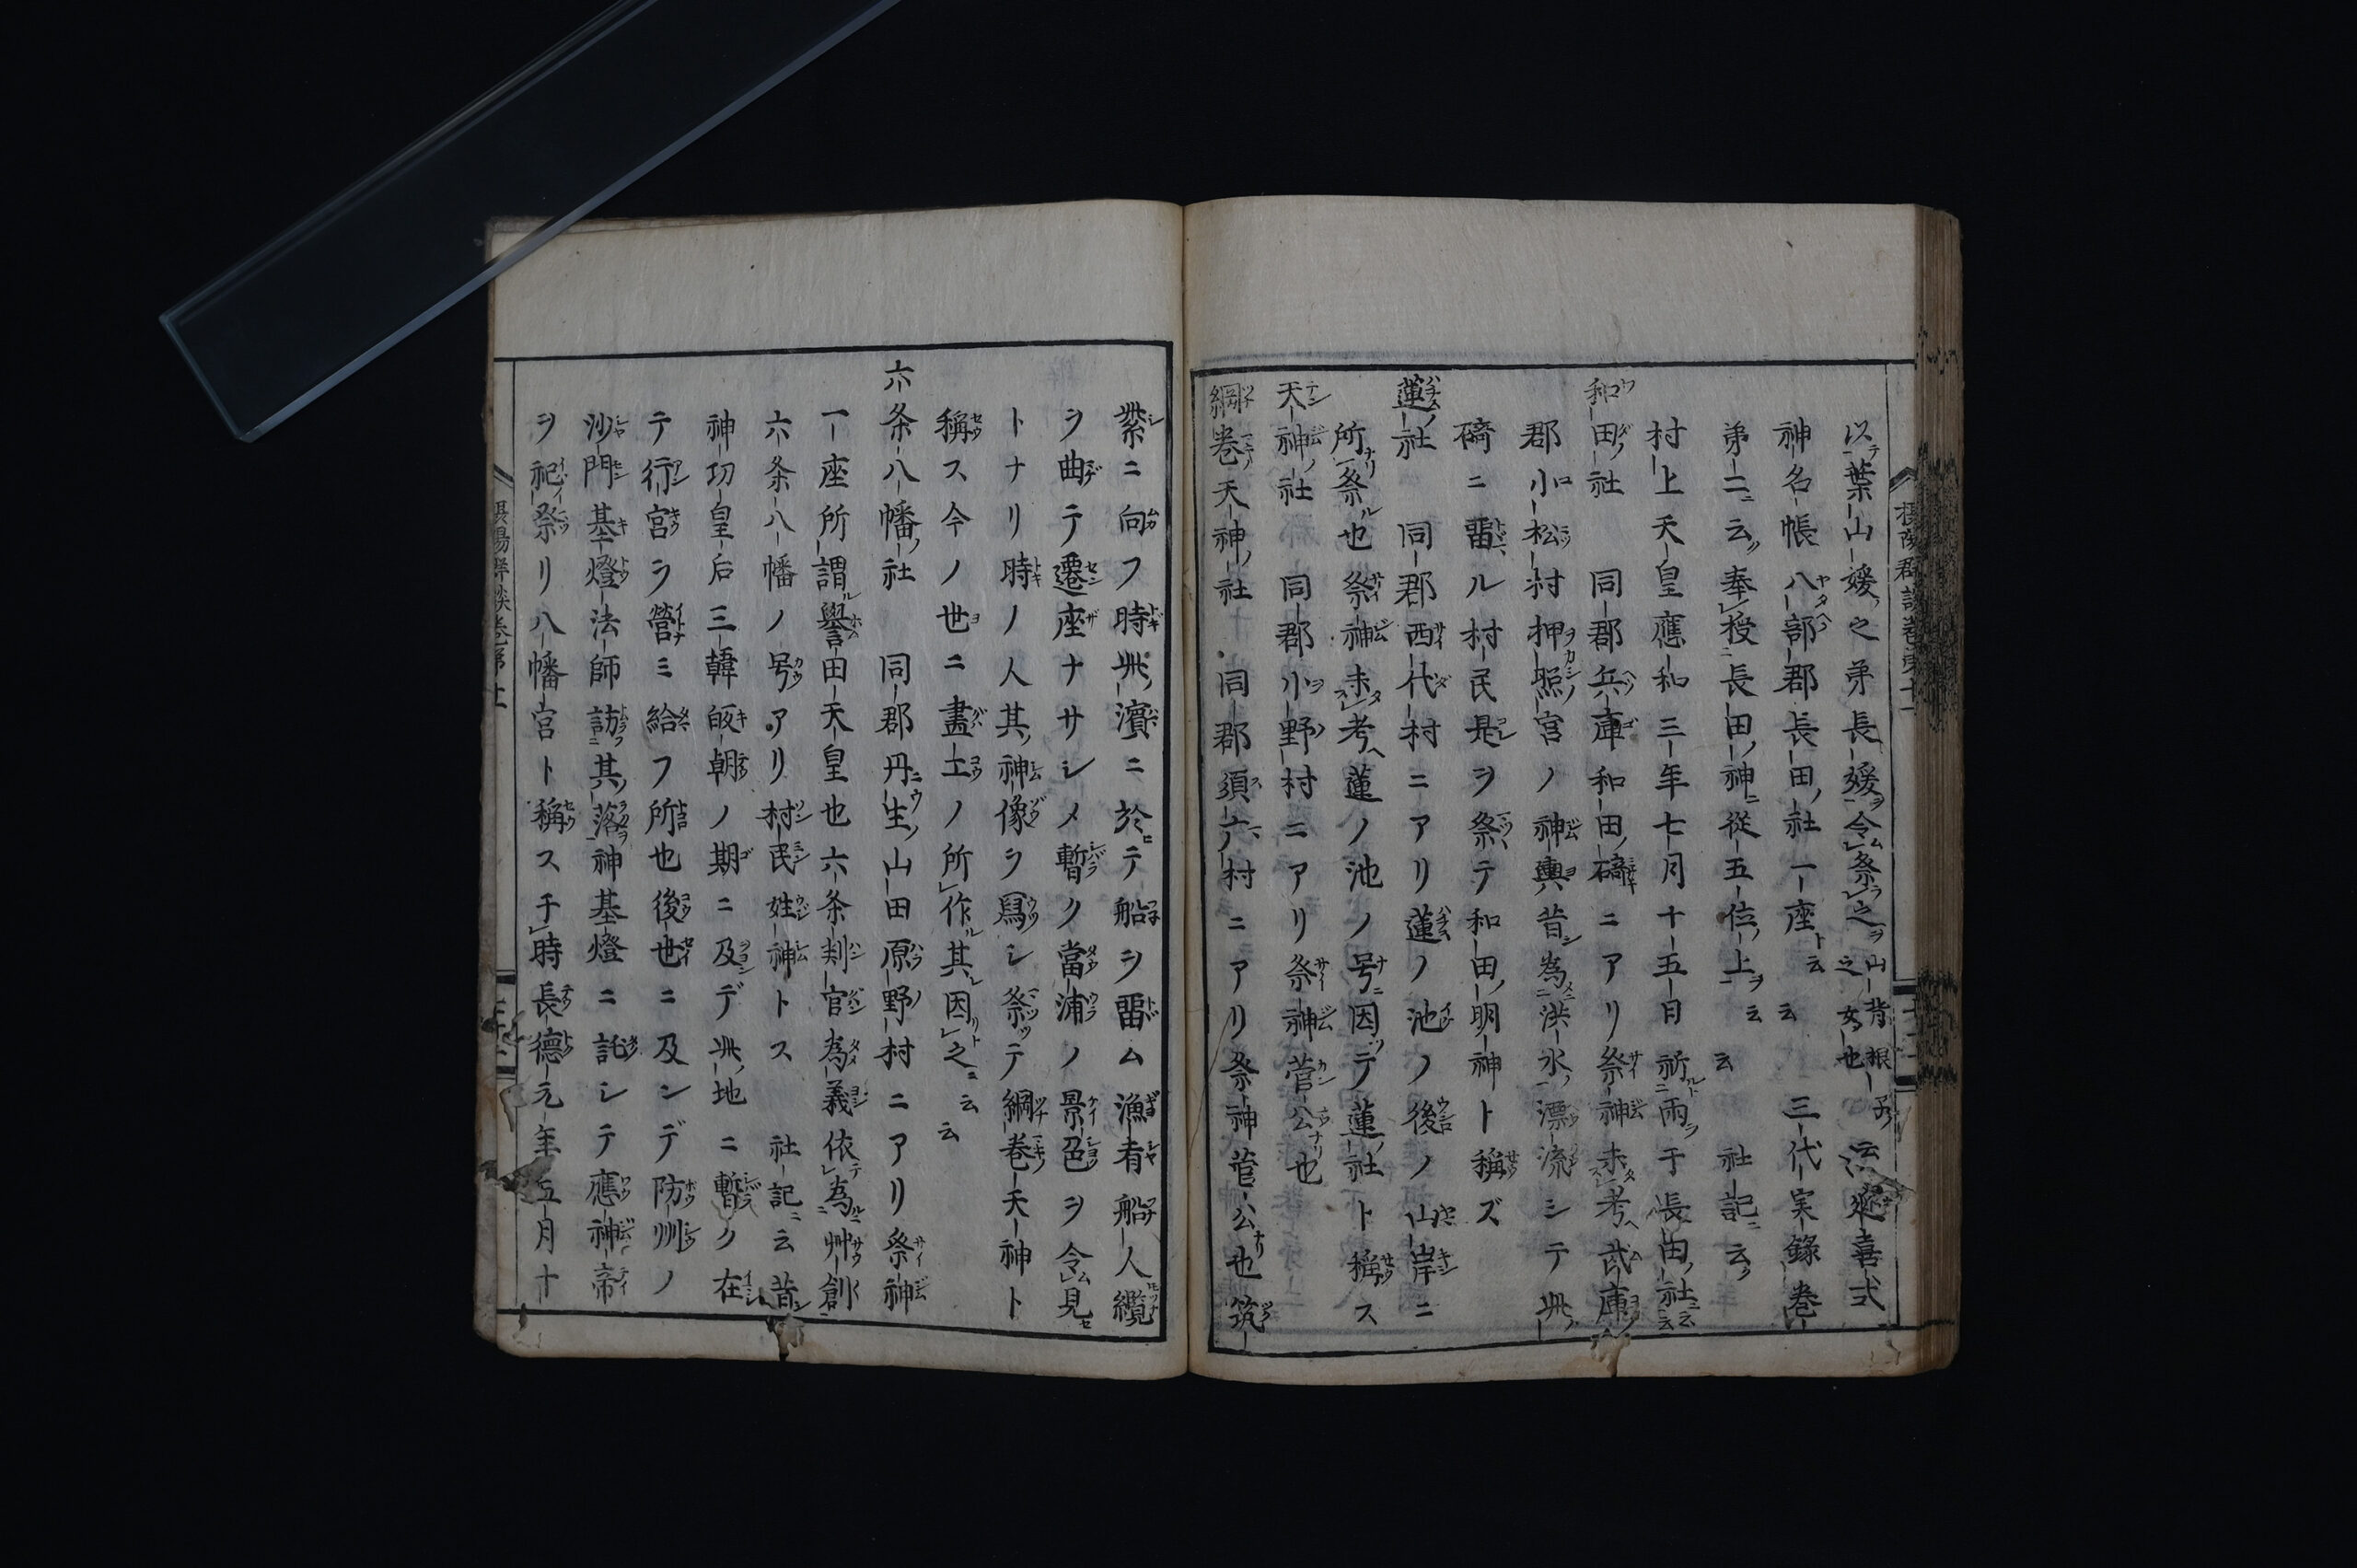 以葉山媛之弟長媛令祭之山背根子之女也云云延喜式
神名帳八部郡長田ノ社一座ト云云 三代実録巻
第二ニ云奉授長田ノ神ニ從五位上ヲ云云 社記ニ云
村上天皇應和三年七月十五日祈雨于長田ノ社ニ云云
和田社 同郡兵庫和田ノ碕ニアリ祭神未考武庫
郡小松村押照宮ノ神輿昔為洪水漂流シテ此
碕ニ畱ル村民是ヲ祭テ和田ノ明神ト稱ズ
蓮ノ社 同郡西代村ニアリ蓮ノ池ノ後ノ山岸ニ
所祭也祭神未考蓮ノ池ノ号ニ因テ蓮ノ社ト稱ス
天神ノ社 同郡小野村ニアリ祭神菅公也
綱巻天神ノ社 同郡須广村ニアリ祭神菅公也筑
紫ニ向フ時此濱ニ於テ船ヲ畱ム漁者船人纜
ヲ曲テ遷座ナサシメ暫ク當浦ノ景色ヲ令見
トナリ時ノ人其神像ヲ冩シ祭テ綱巻天神ト
稱ス今ノ世ニ畫土ノ所作其因之云云
六条八幡ノ社 同郡丹生ノ山田原野村ニアリ祭神
一座所謂譽田天皇也六条判官為義依為艸創
六条八幡ノ号アリ村民姓神トス 社記ニ云昔
神功皇后三韓皈朝ノ期ニ及デ此地ニ暫ク在
テ行宮ヲ營ミ給フ所也後世ニ及ンデ防州ノ
沙門基燈法師訪其落神基燈ニ託シテ應神帝
ヲ祀祭リ八幡宮ト稱ス于時長德元年五月十